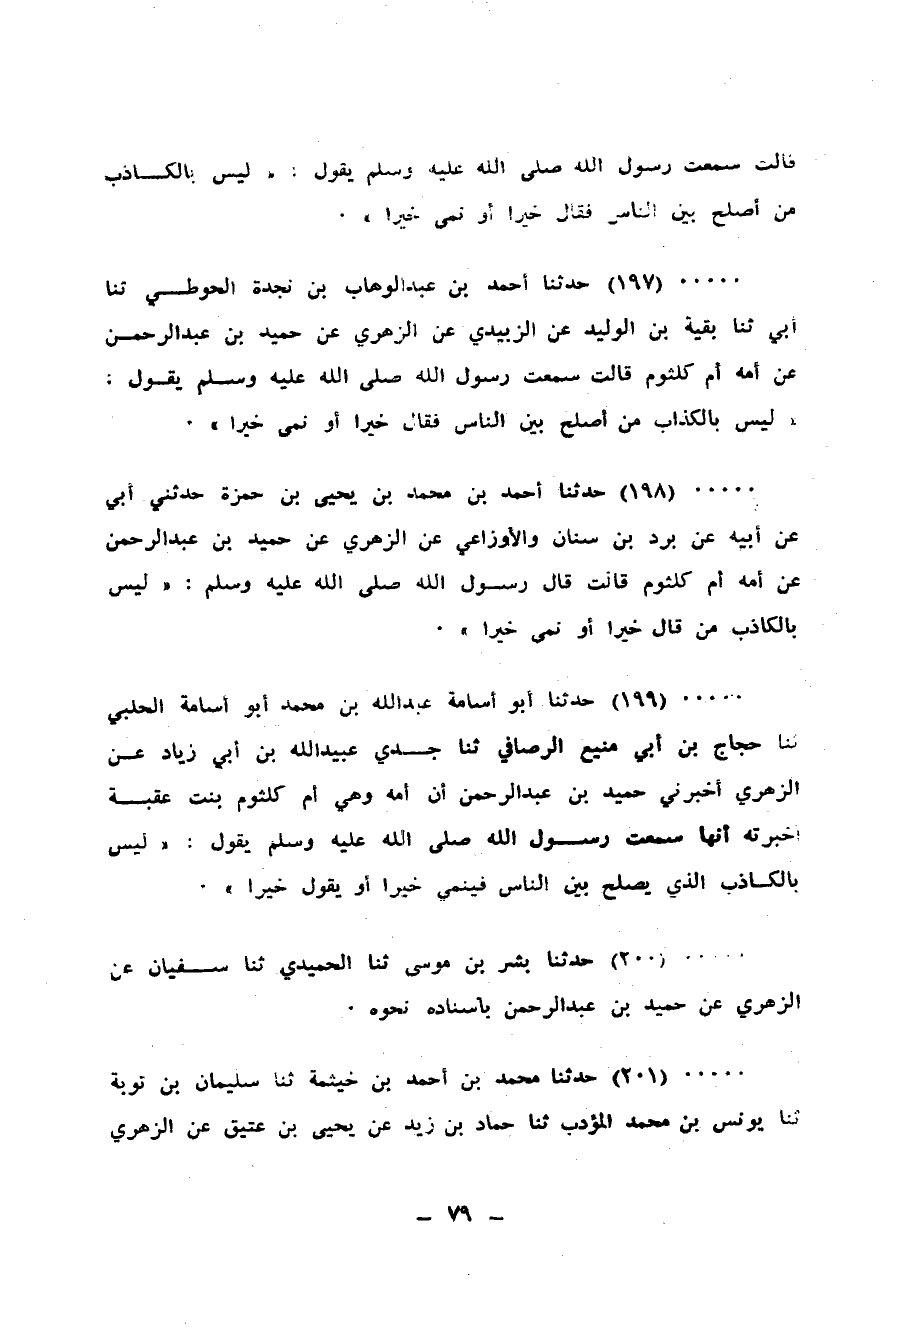 قالت سمعت رسول الله صلى الله عليه وسلم يقول : « ليس بالكــاذب
من أصلح بين الناس فقال خيرا أو نمى خيرا » ٠
٠٠٠٠٠ (١٩٧) حدثنا أحمد بن عبدالوهاب بن نجدة الحوطــي ثنا
أبي ثنا بقية بن الوليد عن الزبيدي عن الزهري عن حميد بن عبدالرحمــن
عن أمه أم كلثوم قالت سمعت رسول الله صلى الله عليه وســلم يقــول :
« ليس بالكذاب من أصلح بين الناس فقال خيرا أو نمى خيرا » ٠
٠٠٠٠٠ (١٩٨) حدثنا أحمد بن محمد بن يحيى بن حمزة حدثني أبي
عن أبيه عن برد بن سنان والأوزاعي عن الزهري عن حميد بن عبدالرحمن
عن أمه أم كلثوم قالت قال رســول الله صلى الله عليه وسلم : « ليس
بالكاذب من قال خيرا أو نمى خيرا » ٠
٠٠٠٠٠ (١٩٩) حدثنا أبو أسامة عبدالله بن محمد أبو أسامة الحلبي
ثنا حجاج بن أبي منيع الرصافي ثنا جــدي عبيدالله بن أبي زياد عــن
الزهري أخبرني حميد بن عبدالرحمن أن أمه وهي أم كلثوم بنت عقبــة
أخبرته أنها سمعت رســـول الله صلى الله عليه وسلم يقول : « ليس
بالكــاذب الذي يصلح بين الناس فينمي خيرا أو يقول خيرا » ٠
٠٠٠٠٠ (٢٠٠) حدثنا بشر بن موسى ثنا الحميدي ثنا ســفيان عن
الزهري عن حميد بن عبدالرحمن بأسناده نحوه ٠
٠٠٠٠٠ (٢٠١) حدثنا محمد بن أحمد بن خيثمة ثنا سليمان بن توبة
ثنا يونس بن محمد المؤدب ثنا حماد بن زيد عن يحيى بن عتيق عن الزهري
ــ ٧٩ ــ